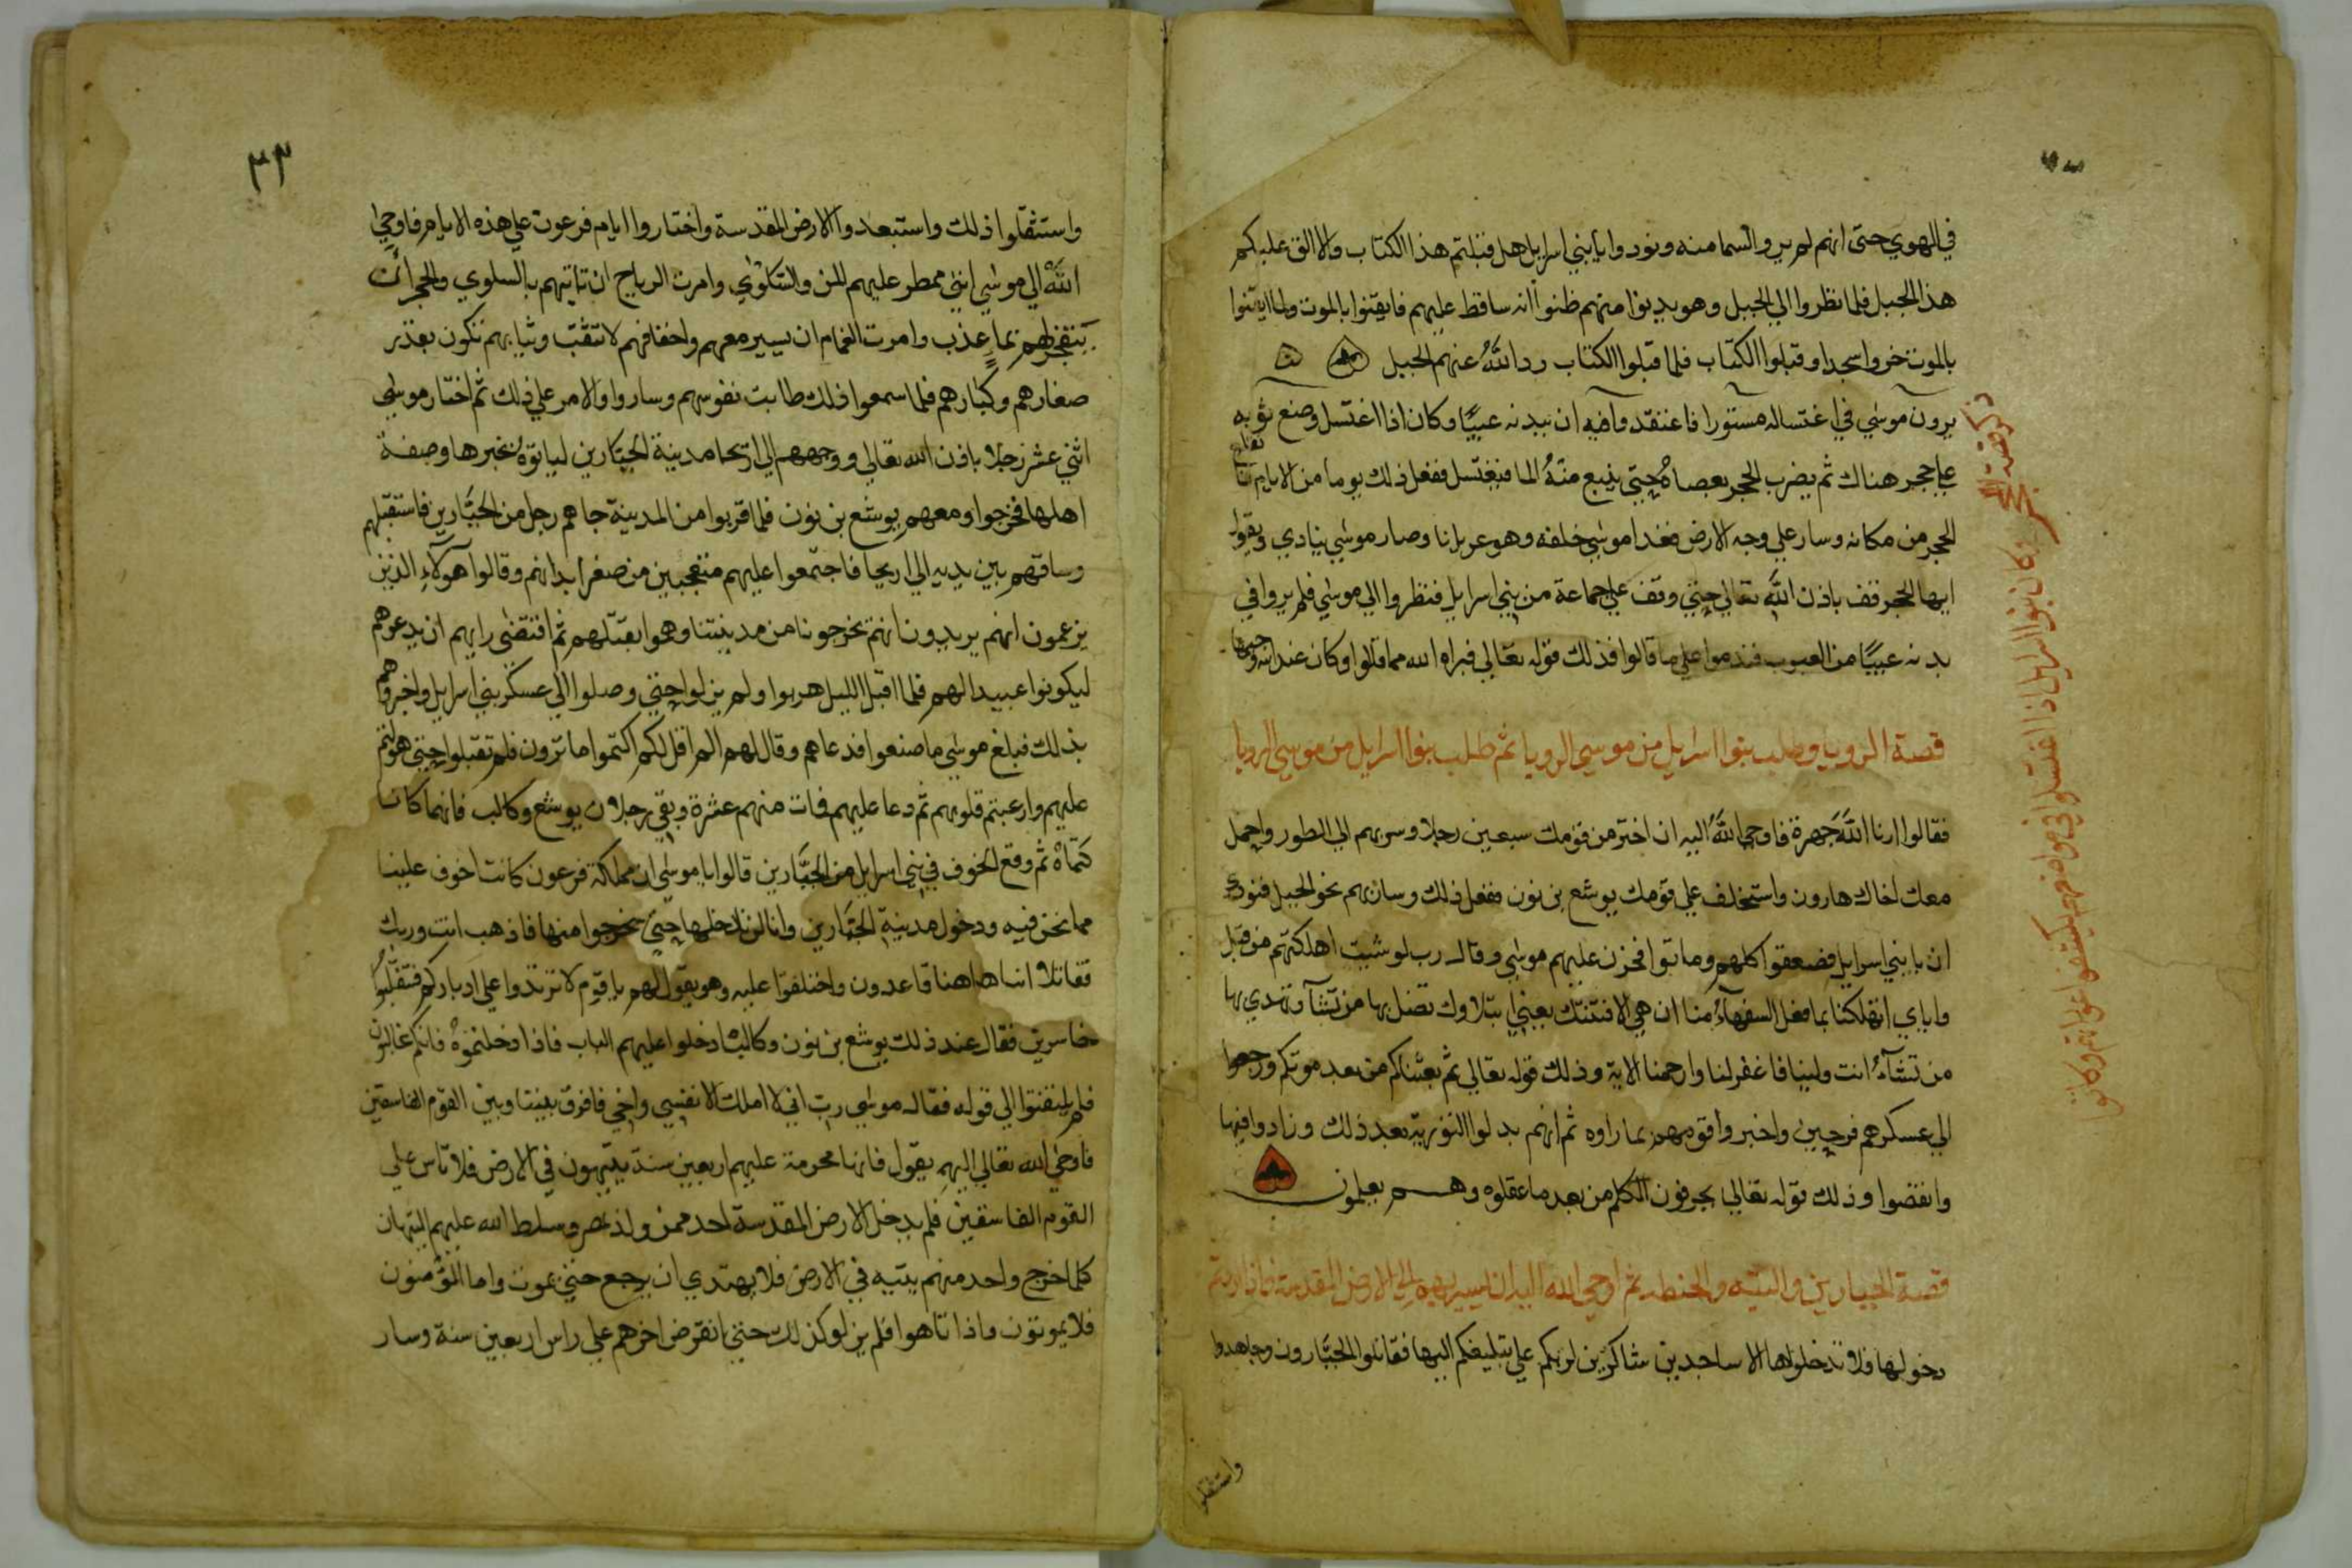 في الهوي حتى انهم لم يروا السما منه ونودوا يا بني اسرايل هل قبلتم هذا الكتاب والا القى عليكم
هذا الجبل فلما نظروا الي الجبل وهو يدنوا منهم ظنوا انه ساقط عليهم فايقنوا بالموت ولما ايقنوا
بالموت خروا سجدا وقبلوا الكتاب فلما قبلوا الكتاب رد الله عنهم الجبل
ذكر قصة الحجر وكان بنوا اسرايل اذا اغتسلوا في مواضعهم يكشفوا عوراتهم وكانوا
يرون موسي في اغتساله مستورا فاعتقدوا فيه ان ببدنه عيبًا وكان اذا اغتسل وضع ثوبه
على حجر هناك ثم يضرب الحجر بعصاه حتى ينبع منه الما فيغتسل ففعل ذلك يوما من الايام فانقلع
الحجر من مكانه وسار علي وجه الارض فغدا موسي خلفه وهو عريانا وصار موسي ينادي ويقول
ايها الحجر قف باذن الله تعالي حتي وقف علي جماعة من بني اسرايل فنظروا الي موسي فلم يروا في
بدنه عيبًا من العيوب فندموا علي ما قالوا فذلك قوله تعالي فبراه الله مما قالوا وكان عند الله وجيها
قصة الرويا وطلب بنوا اسرايل من موسي الرويا ثم طلب بنوا اسرايل من موسي الرويا
فقالوا ارنا الله جهرة فاوحي الله اليه ان اختر من قومك سبعين رجلا وسر بهم الي الطور واحمل
معك اخاك هارون واستخلف علي قومك يوشع بن نون ففعل ذلك وسار بهم نحو الجبل فنودي
ان يا بني اسرايل فصعقوا كلهم وماتوا فحزن عليهم موسي وقال رب لو شيت اهلكتهم من قبل
واياي اتهلكنا بما فعل السفهآء منا ان هي الا فتنتك يعني ابتلاوك تضل بها من تشآ وتهدي بها
من تشآء انت ولينا فاغفر لنا وارحمنا الاية وذلك قوله تعالي ثم بعثناكم من بعد موتكم ورجعوا
الي عسكرهم فرحين واخبروا قومهم بما راوه ثم انهم بدلوا التوريه بعد ذلك وزادوا فيها
وانقضوا وذلك قوله تعالي يحرفون الكلم من بعد ما عقلوه وهم يعلمون
قصة الجبارين والتيه والحنطه ثم اوحي الله اليه ان يسير بهم الي الارض المقدسة فاذا اردتم
دخولها فلا تدخلوها الا ساجدين شاكرين لربكم علي تبليغكم اليها فقاتلوا الجبارون وجاهدوا
واستثقلوا
٣٣
واستثقلوا ذلك واستبعدوا الارض المقدسة واختاروا ايام فرعون علي هذه الايام فاوحي
الله الي موسي انني ممطر عليهم المن والسكلوي وامرت الرياح ان تاتيهم بالسلوي والحجر ان
يتفجر لهم بماء عذب وامرت الغمام ان يسير معهم واخفافهم لا تثقب وثيابهم تكون بقدر
صغارهم وكبارهم فلما سمعوا ذلك طابت نفوسهم وساروا والامر علي ذلك ثم اختار موسي
اثني عشر رجلا باذن الله تعالي ووجههم الي اريحا مدينة الجبارين لياتوه بخبرها وصفة
اهلها فخرجوا ومعهم يوشع بن نون فلما قربوا من المدينة جاهم رجل من الجبارين فاستقبلهم
وساقهم بين يديه الي اريحا فاجتمعوا عليهم متعجبين من صغر ابدانهم وقالوا هولآء الذين
يزعمون انهم يريدون انهم يخرجونا من مدينتنا وهموا بقتلهم ثم اقتضي رايهم ان يدعوهم
ليكونوا عبيدا لهم فلما اقبل الليل هربوا ولم يزلوا حتي وصلوا الي عسكر بني اسرايل واخبروهم
بذلك فبلغ موسي ما صنعوا فدعاهم وقال لهم الم اقل لكم اكتموا ما ترون فلم تقبلوا حتي هولتم
عليهم وارعبتم قلوبهم ثم دعا عليهم فمات منهم عشرة وبقي رجلان يوشع وكالب فانهما كانا
كتماه ثم وقع الخوف في بني اسرايل من الجبارين قالوا يا موسي ان مملكة فرعون كانت اخوف علينا
مما نحن فيه ودخول مدينة الجبارين وانا لن ندخلها حتي يخرجوا منها فاذهب انت وربك
فقاتلا انا هاهنا قاعدون واختلفوا عليه وهو يقول لهم يا قوم لا ترتدوا علي ادباركم فتنقلبوا
خاسرين فقال عند ذلك يوشع بن نون وكالب ادخلوا عليهم الباب فاذا دخلتموه فانكم غالبون
فلم يلتفتوا الي قوله فقال موسي رب اني لا املك الا نفسي واخي فافرق بيننا وبين القوم الفاسقين
فاوحي الله تعالي اليهم يقول فانها محرمة عليهم اربعين سنة يتيهون في الارض فلا تاس علي
القوم الفاسقين فلم يدخل الارض المقدسة احد ممن ولد بمصر وسلط الله عليهم التيهان
كلما خرج واحد منهم يتيه في الارض فلا يهتدي ان يرجع حتي يموت واما المؤمنون
فلا يموتون واذا تاهوا فلم يزلوا كذلك حتي انقرض اخرهم علي راس اربعين سنة وسار